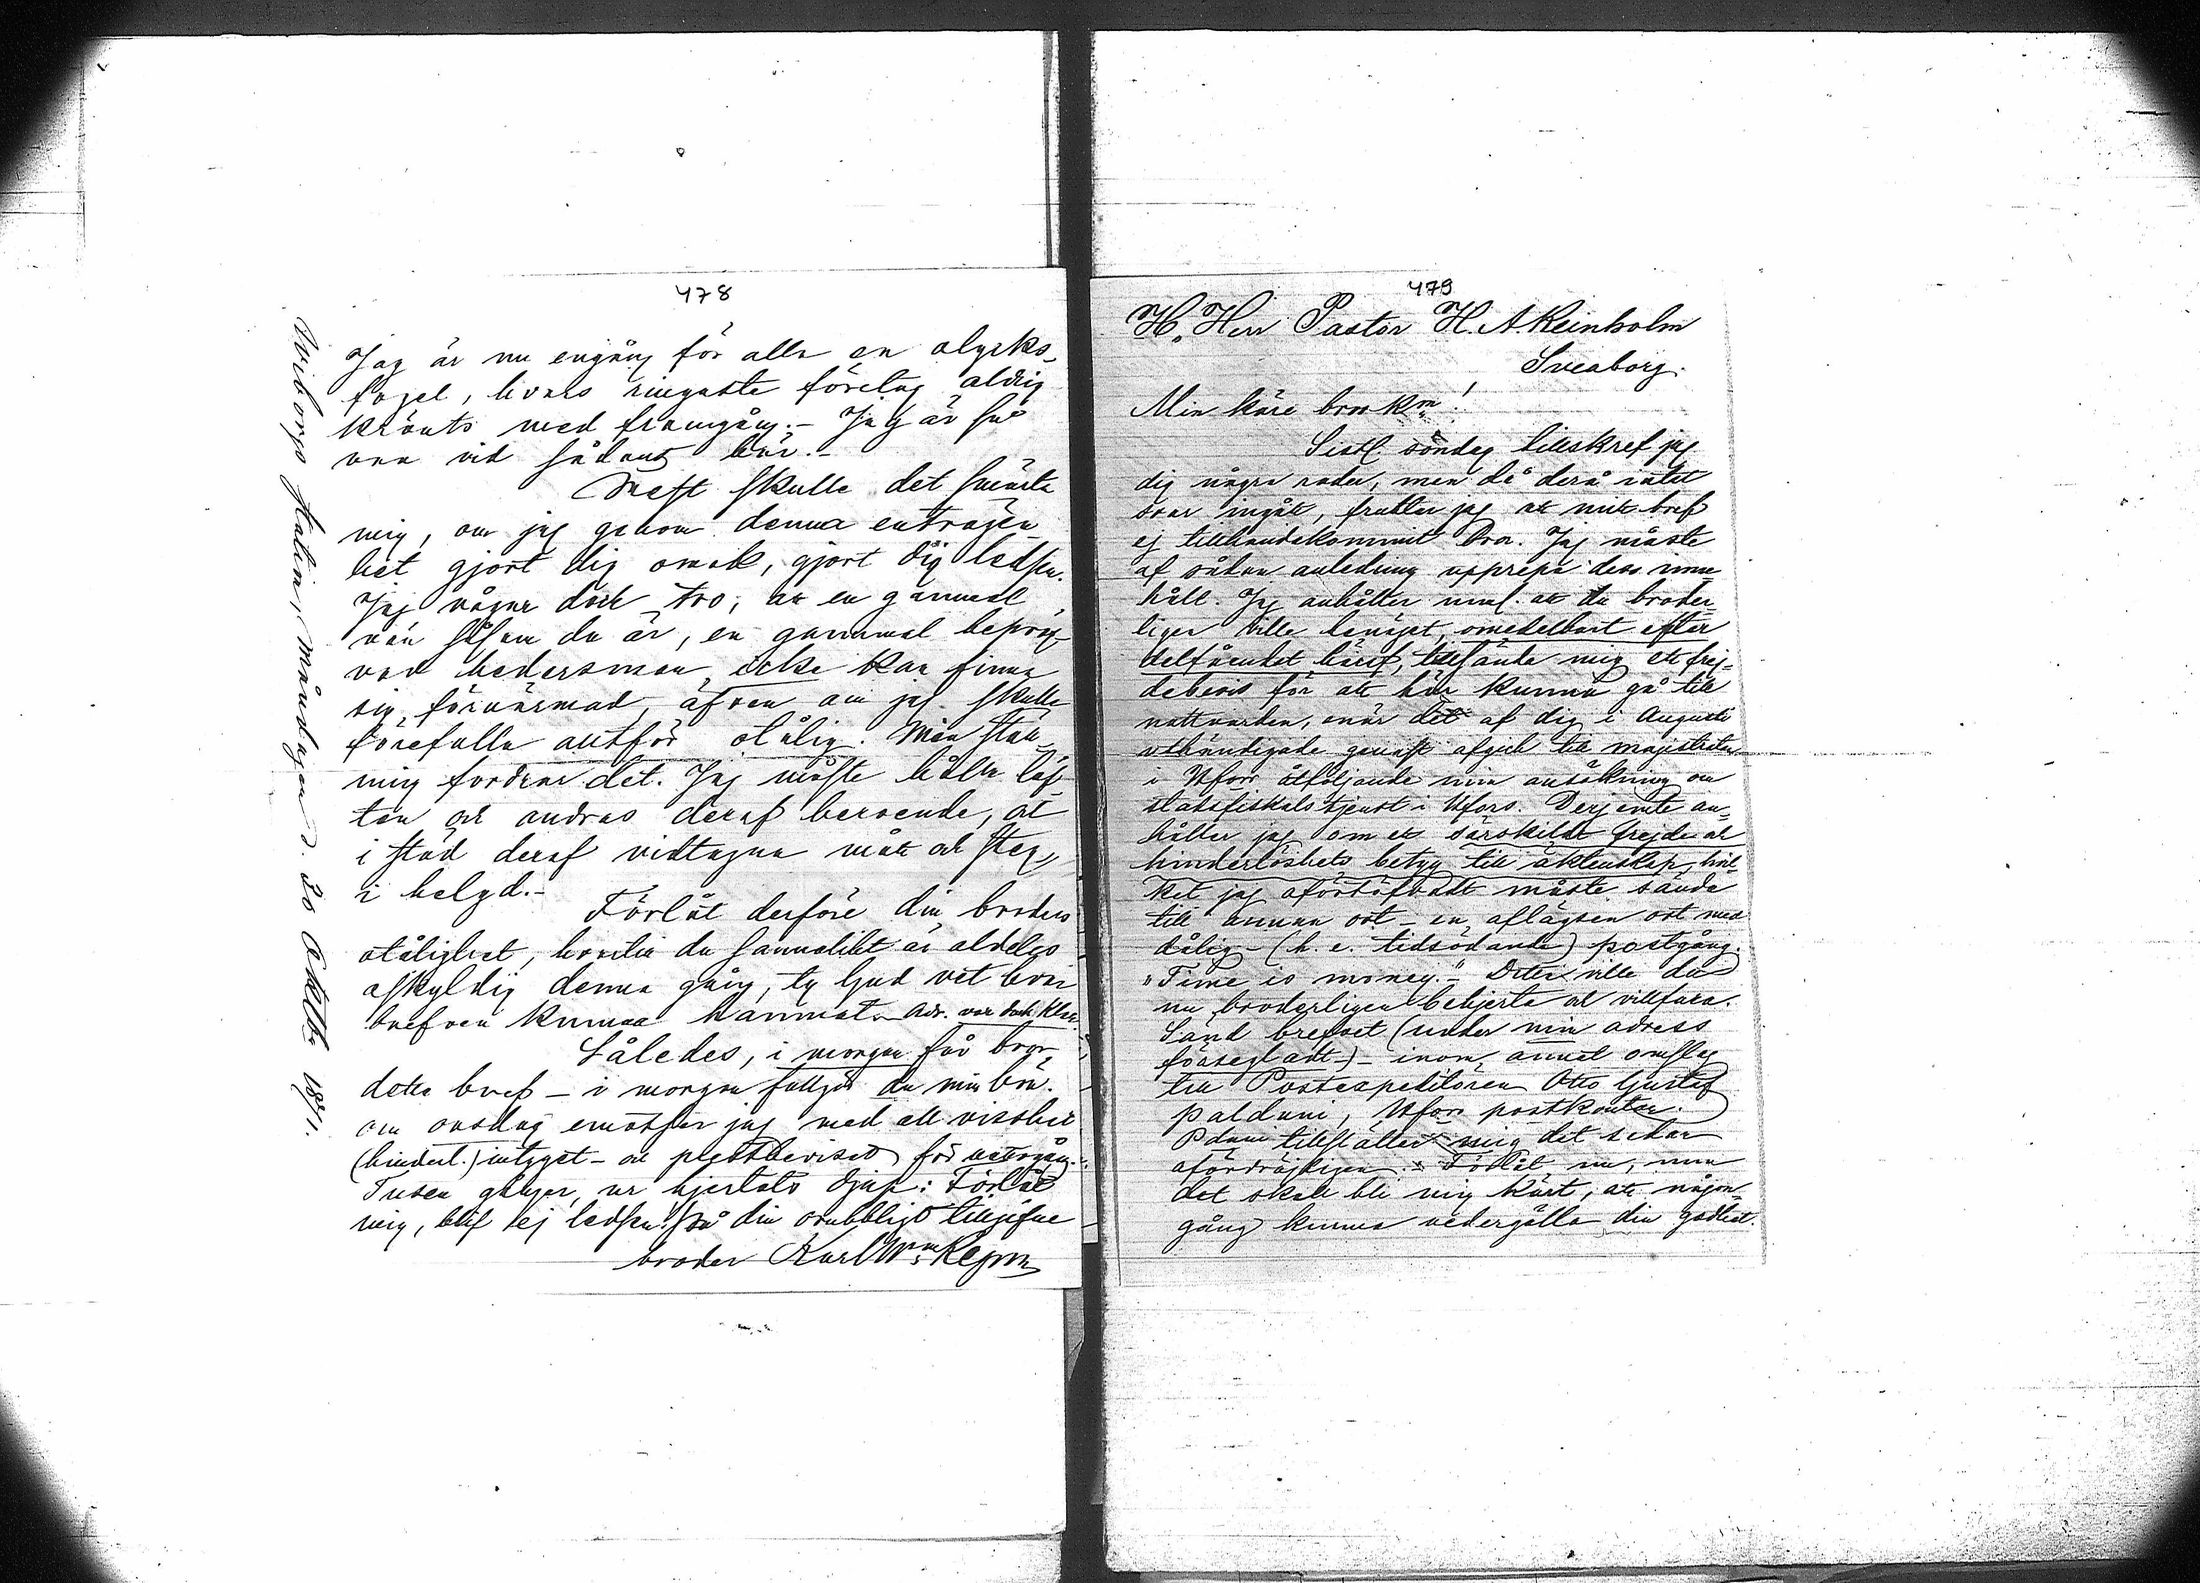 478
Jag är nu engång för alla en olycks-
fogel, hvars ringaste företag aldrig
krönts med framgång. – Jag är så
van vid sådant här. –
Mest skulle det smärta
mig, om jag genom denna enträgen
het gjort dig omak, gjort dig ledsen.
Jag vågar dock tro, att en gammal
vän såsom du är, en gammal bepröf-
vad hedersman icke kan finna
sig förnärmad, äfven om jag skulle
förefalla alltför otålig. Min ställ
ning fordrar det. Jag måste hålla löf-
ten och andras deraf beroende, at
i stöd deraf vidtagna mått och steg,
i helgd. –
Förlåt derföre din broders
otålighet, hvartil du sannolikt är aldeles
oskyldig denna gång, ty Gud vet hvar
brefven kunna hamnat. Adr. var dock klar.
Således, i morgon få bror
detta bref – i morgon fullgör du min bön.
om onsdag emotser jag med all visshet
(hinderl.) intyget – och prestbeviset för nattvgång.
Tusen gånger, ur hjertats djup: Förlåt
mig, blif ej ledsen på din orubbligt tillgifne
broder Karl Wm
Wiborgs station, måndagen d.
1871.
479
H. Herr Pastor H. A. Reinholm
Sveaborg.
Min käre bror!
Sistl. söndag tillskref jag
dig några rader, men då derå intet
svar ingått, fruktar jag att mitt bref
ej tillhandakommit bror. Jag måste
af sådan anledning upprepa dess inne
håll. Jag anhåller neml. att du broder-
ligen ville benäget, omedelbart efter
delfåendet häraf, tillsända mig ett frej-
debevis för att här kunna gå till
nattvarden, enär det af dig i Augusti
uthändigade genast afgick till magistraten
i Hfors åtföljande min ansökning om
stadsfiskalstjenst i Hfors. Derjemte an-
håller jag om ett särskildt frejde och
hinderlöshets betyg till äktenskap, hvil-
ket jag oförtöfvadt måste sända
till annan ort – en aflägsen ort med
dålig – (h. e. tidsödande) postgång.
"Time is money." Detta ville du
nu broderligen behjerta och villfara.
Sänd brefvet (under min adress
försegladt –) – inom annat omslag
till Postexpeditören Otto Gustaf
Paldani, Hfors postkontor.
Pdani tillställer mig det sedan
ofördröjligen. – Förlåt nu, men
det skall bli mig kärt, att någon-
gång kunna vedergälla din godhet.